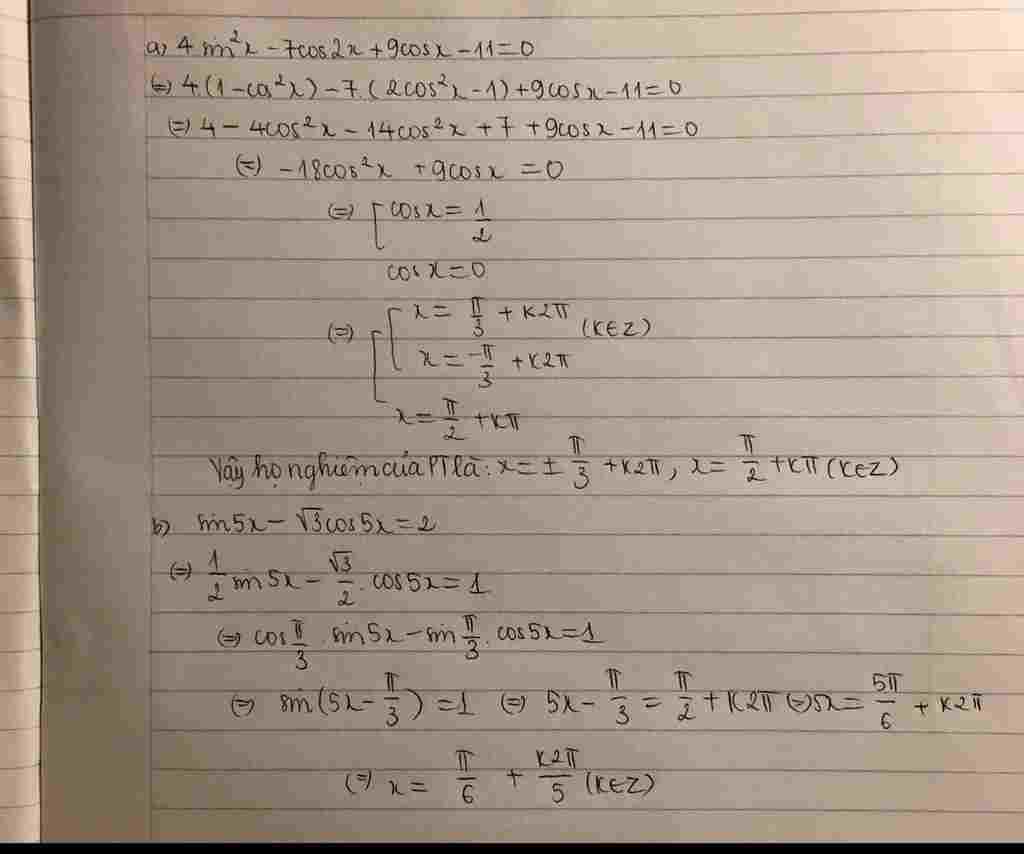 a) 4 sin²x - 7cos2x + 9cosx - 11 = 0
(=) 4.(1 - cos²x) - 7.(2cos²x - 1) + 9cosx - 11 = 0
(=) 4 - 4cos²x - 14cos²x + 7 + 9cosx - 11 = 0
(=) -18cos²x + 9cosx = 0
(=) [ cosx = 1/2
cosx = 0
(=) [ [ x = π/3 + k2π (k∈Z)
x = -π/3 + k2π
x = π/2 + kπ
Vậy họ nghiệm của PT là: x = ± π/3 + k2π, x = π/2 + kπ (k∈Z)
b) sin5x - √3cos5x = 2
(=) 1/2 sin5x - √3/2 . cos5x = 1
(=) cos π/3 . sin5x - sin π/3 . cos5x = 1
(=) sin(5x - π/3) = 1 (=) 5x - π/3 = π/2 + k2π (=) 5x = 5π/6 + k2π
(=) x = π/6 + k2π/5 (k∈Z)